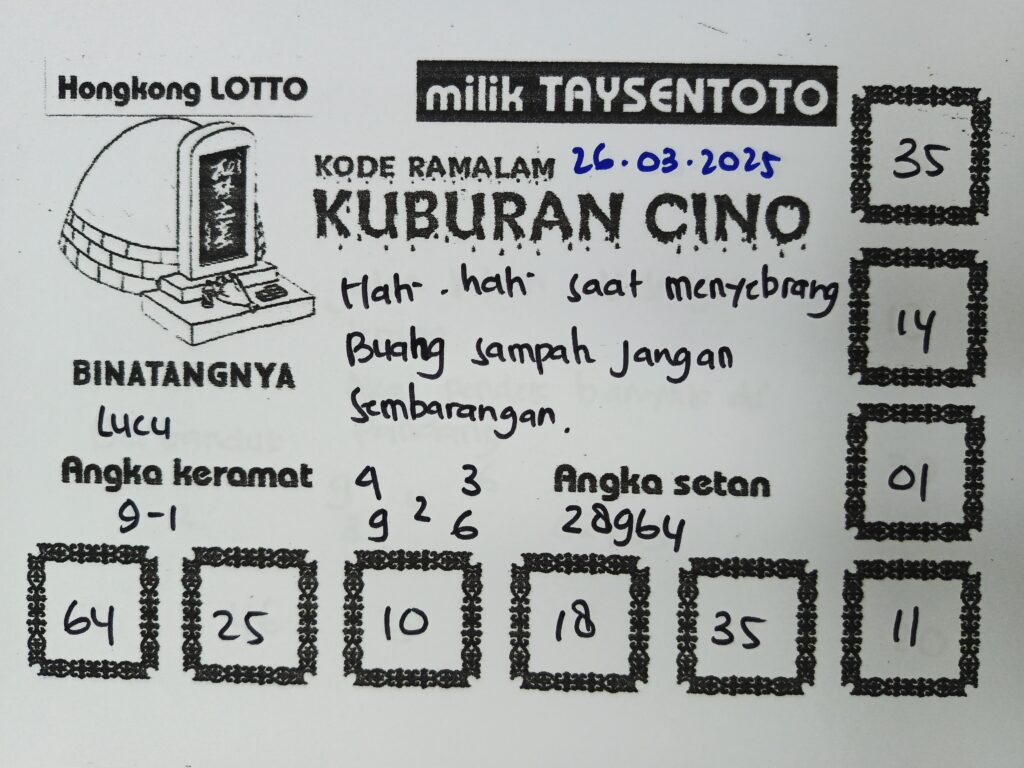 Hongkong LOTTO
milik TAYSENTOTO
KODE RAMALAM 26.03.2025
KUBURAN CINO
Hati-hati saat menyebrang
Buang sampah jangan
sembarangan.
BINATANGNYA
Lucu
Angka keramat
9-1
4 3
2
9 6
Angka setan
28964
35
14
01
64 25 10 18 35 11